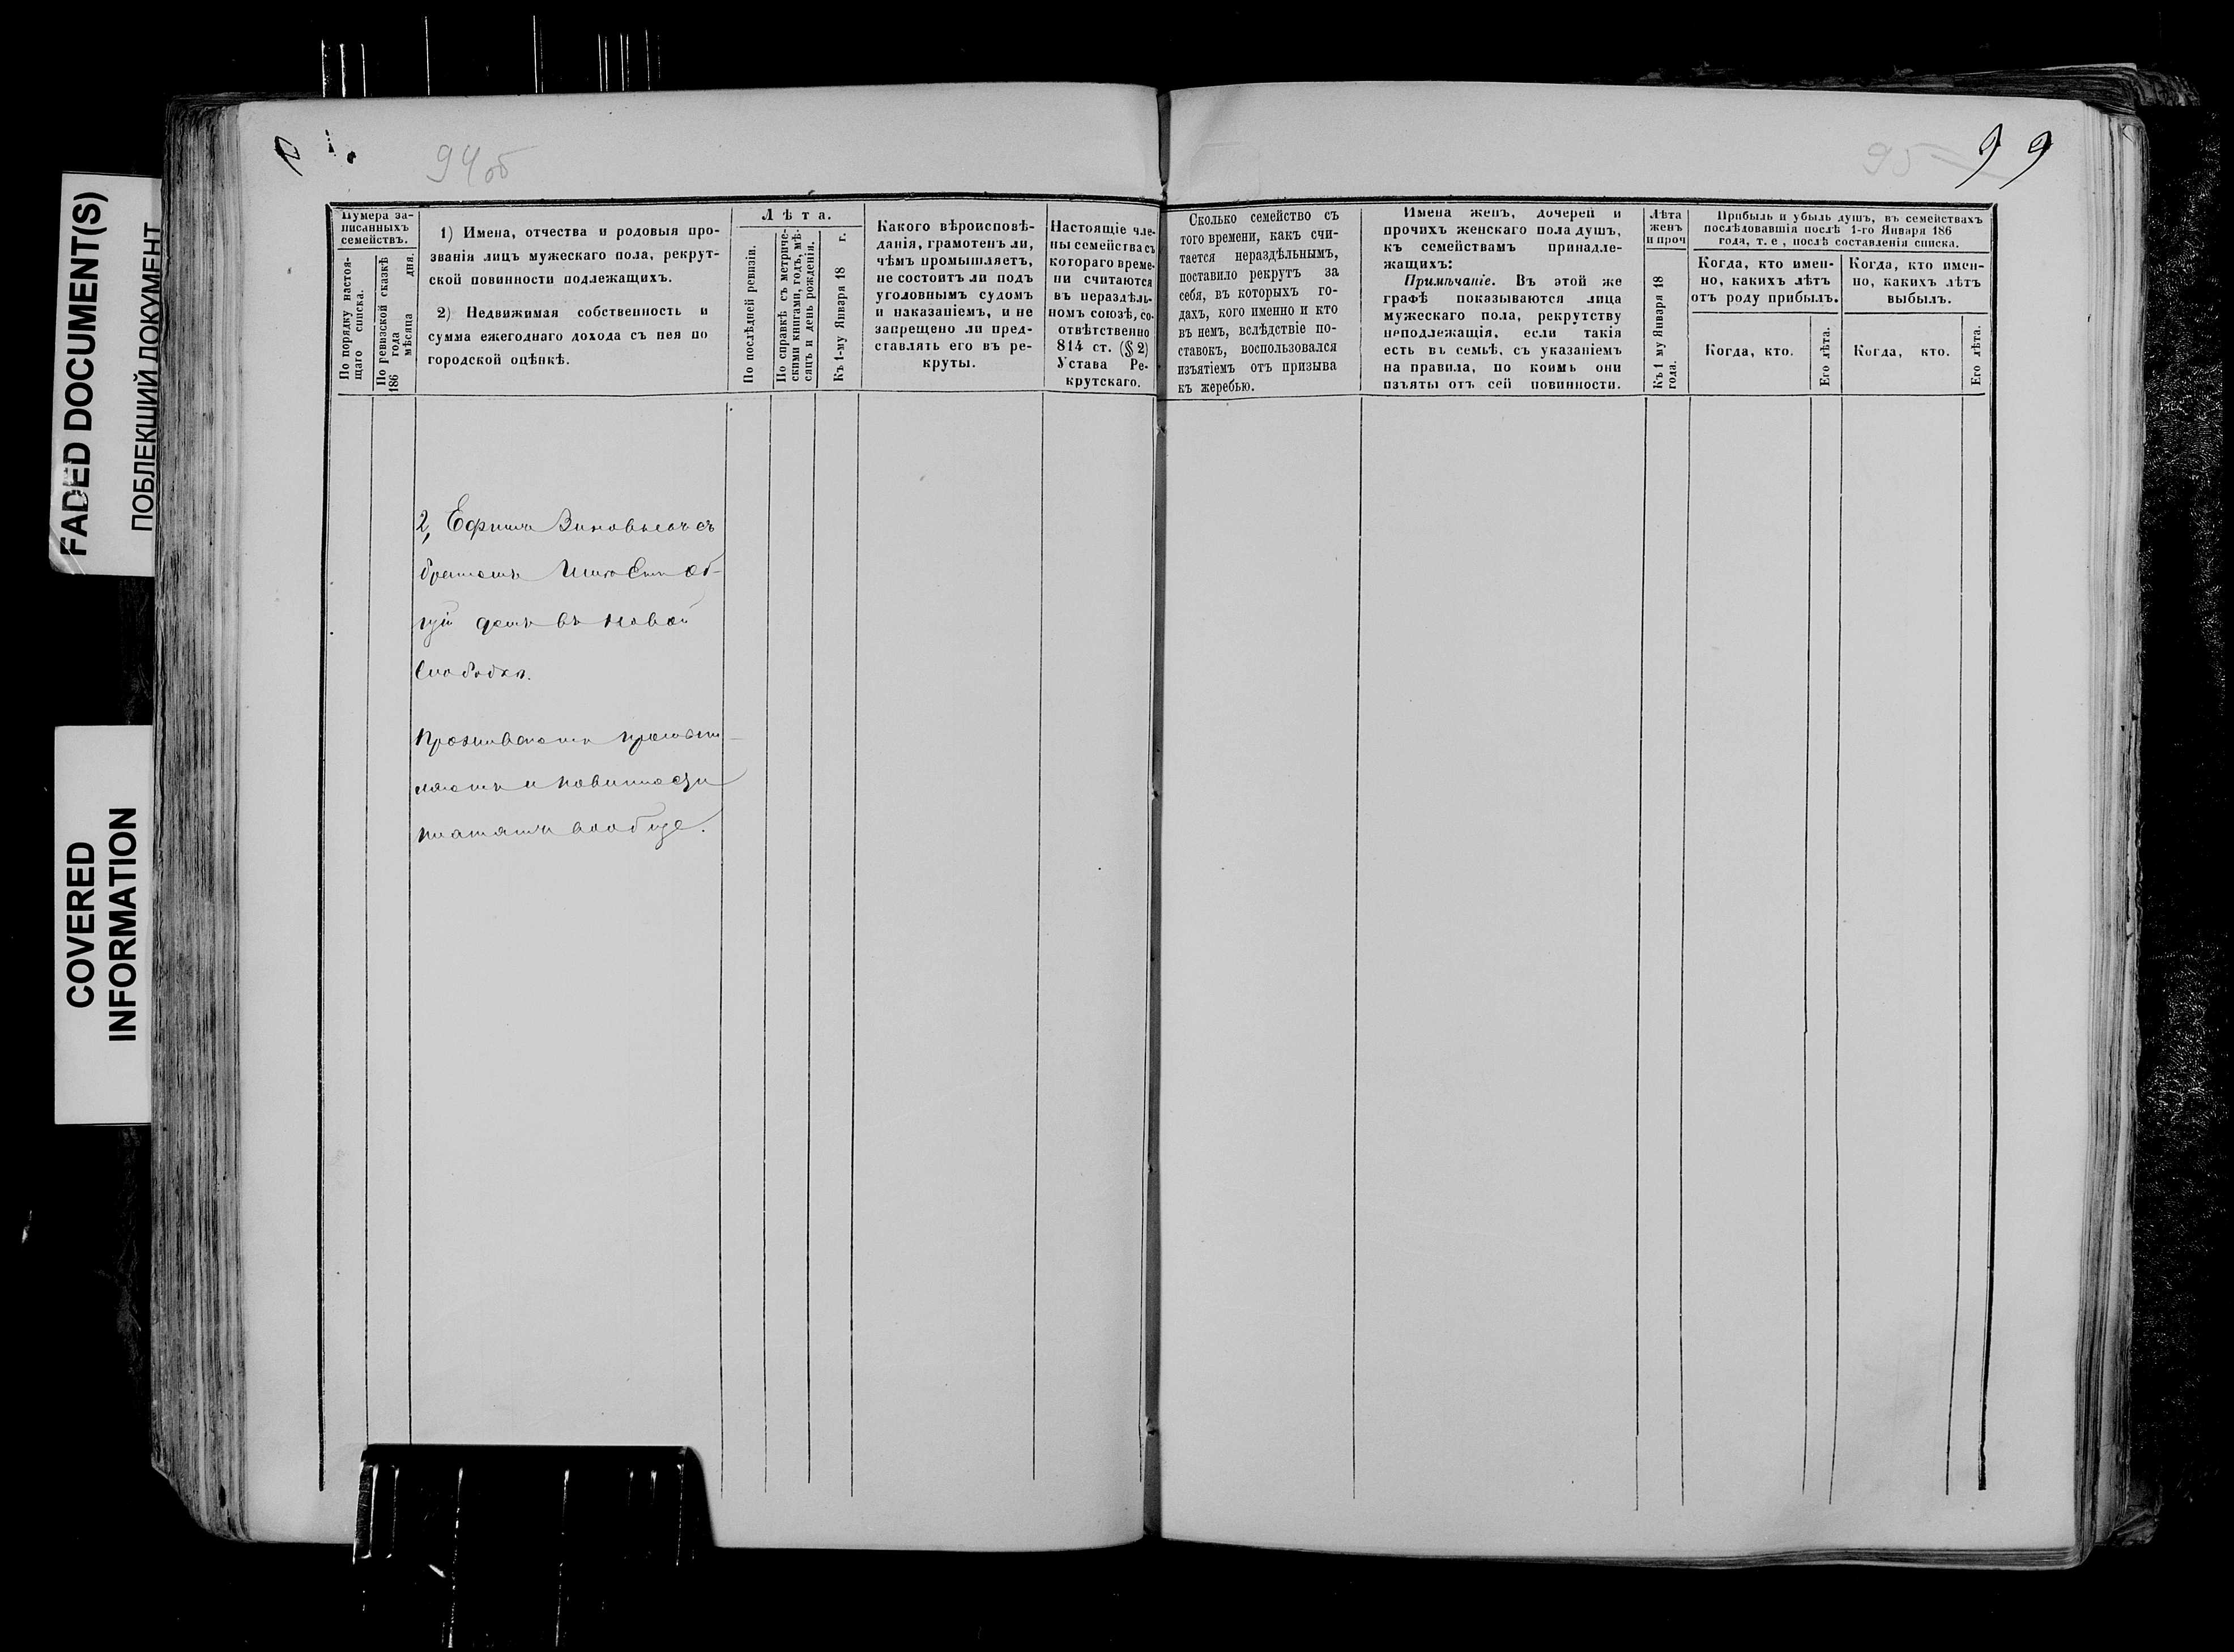 FADED DOCUMENT(S)
ПОБЛЕКШИЙ ДОКУМЕНТ
COVERED
INFORMATION
94об
95
99
Нумера за-
писанныхъ
семействъ.
По порядку настоя-
щаго списка.
По ревизской сказкѣ
186 года
мѣсяца дня.
1) Имена, отчества и родовыя про-
званія лицъ мужескаго пола, рекрут-
ской повинности подлежащихъ.
2) Недвижимая собственность и
сумма ежегоднаго дохода съ нея по
городской оцѣнкѣ.
Лѣта.
По послѣдней ревизіи.
По справкѣ съ метриче-
скими книгами, годъ, мѣ-
сяцъ и день рожденія.
Къ 1-му Января 18 г.
Какого вѣроисповѣ-
данія, грамотенъ ли,
чѣмъ промышляетъ,
не состоитъ ли подъ
уголовнымъ судомъ
и наказаніемъ, и не
запрещено ли пред-
ставлять его въ ре-
круты.
Настоящіе чле-
ны семейства съ
котораго време-
ни считаются
въ нераздѣль-
номъ союзѣ, со-
отвѣтственно
814 ст. (§ 2)
Устава Ре-
крутскаго.
2, Ефимъ Зиновьевъ съ
братомъ
домъ въ Новой
Слободкѣ.
Проживаютъ
и повинности
платятъ вообще.
Сколько семейство съ
того времени, какъ счи-
тается нераздѣльнымъ,
поставило рекрутъ за
себя, въ которыхъ го-
дахъ, кого именно и кто
въ немъ, вслѣдствіе по-
ставокъ, воспользовался
изъятіемъ отъ призыва
къ жеребью.
Имена женъ, дочерей и
прочихъ женскаго пола душъ,
къ семействамъ принадле-
жащихъ:
Примѣчаніе. Въ этой же
графѣ показываются лица
мужескаго пола, рекрутству
неподлежащія, если такія
есть въ семьѣ, съ указаніемъ
на правила, по коимъ они
изъяты отъ сей повинности.
Лѣта
женъ
и проч
Къ 1 му Января 18
года.
Прибыль и убыль душъ, въ семействахъ
послѣдовавшія послѣ 1-го Января 186
года, т. е , послѣ составленія списка.
Когда, кто имен-
но, какихъ лѣтъ
отъ роду прибылъ.
Когда, кто.
Его лѣта.
Когда, кто имен-
но, какихъ лѣтъ
выбылъ.
Когда, кто.
Его лѣта.